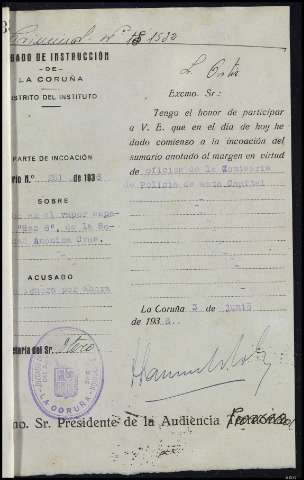 GADO DE INSTRUCCIÓN
-DE-
LA CORUÑA
DISTRITO DEL INSTITUTO
PARTE DE INCOACIÓN
rio N.º 193
SOBRE
en el vapor
"Mac 6", de la So-
dad Anónima Cros.
ACUSADO
por ahora
Secretaría del Sr. Otero
LA CORUÑA
Excmo. Sr:
Tengo el honor de participar
a V. E. que en el día de hoy he
dado comienzo a la incoación del
sumario anotado al margen en virtud
de oficios de la Comisaría
de Policía de esta Capital
La Coruña 3 de junio
de 193
mo. Sr. Presidente de la Audiencia Provincial